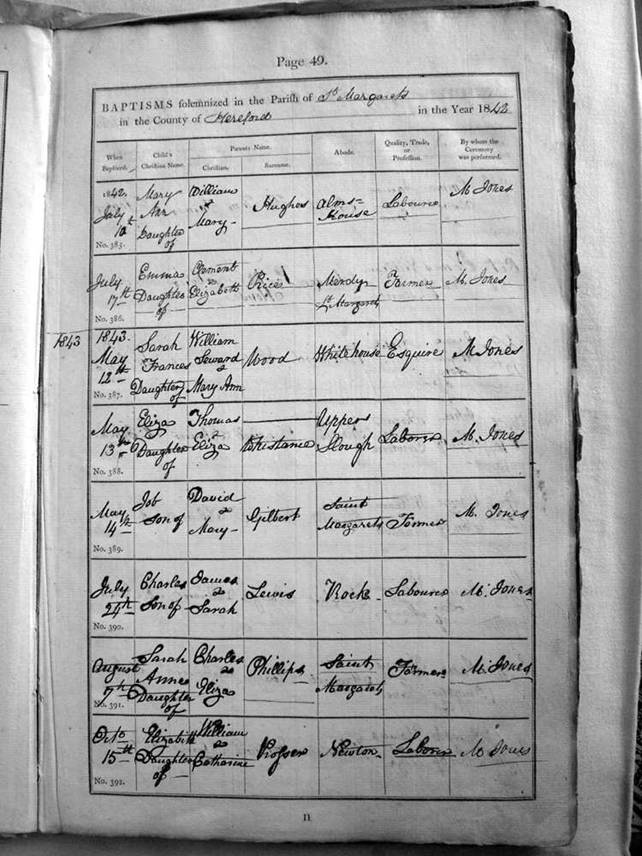 Page 49.
BAPTISMS solemnized in the Parish of St Margarets
in the County of Hereford in the Year 1842
When Baptized. Child's Christian Name. Parents Name. Christian. Surname. Abode. Quality, Trade, or Profession. By whom the Ceremony was performed.
1842. July 10th Mary Ann Daughter of William & Mary Hughes Alms-House Labourer M. Jones
No. 385.
July 17th Emma Daughter of Clement & Elizabeth Price Mendy St Margarets Farmer M. Jones
No. 386.
1843
1843. May 12th Sarah Frances Daughter of William Seward & Mary Ann Wood Whitehouse Esquire M Jones
No. 387.
May 13th Eliza Daughter of Thomas & Eliza Whistance Upper Slough Laborer M. Jones
No. 388.
May 14th Job Son of David & Mary Gilbert Saint Margarets Farmer M. Jones
No. 389.
July 24th Charles Son of James & Sarah Lewis Rock Labourer M. Jones
No. 390.
August 9th Sarah Annee Daughter of Charles & Eliza Phillips Saint Margarets Farmer M. Jones
No. 391.
Octo 15th Elizabeth Daughter of William & Catharine Prosser Newton Laborer M. Jones
No. 392.
II